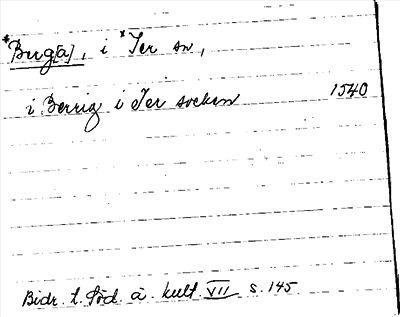 *Berg[a], i *Ter sn,
i Berrig i Ter socken 1540
Bidr. t. Söd. ä. kult. VII s. 145